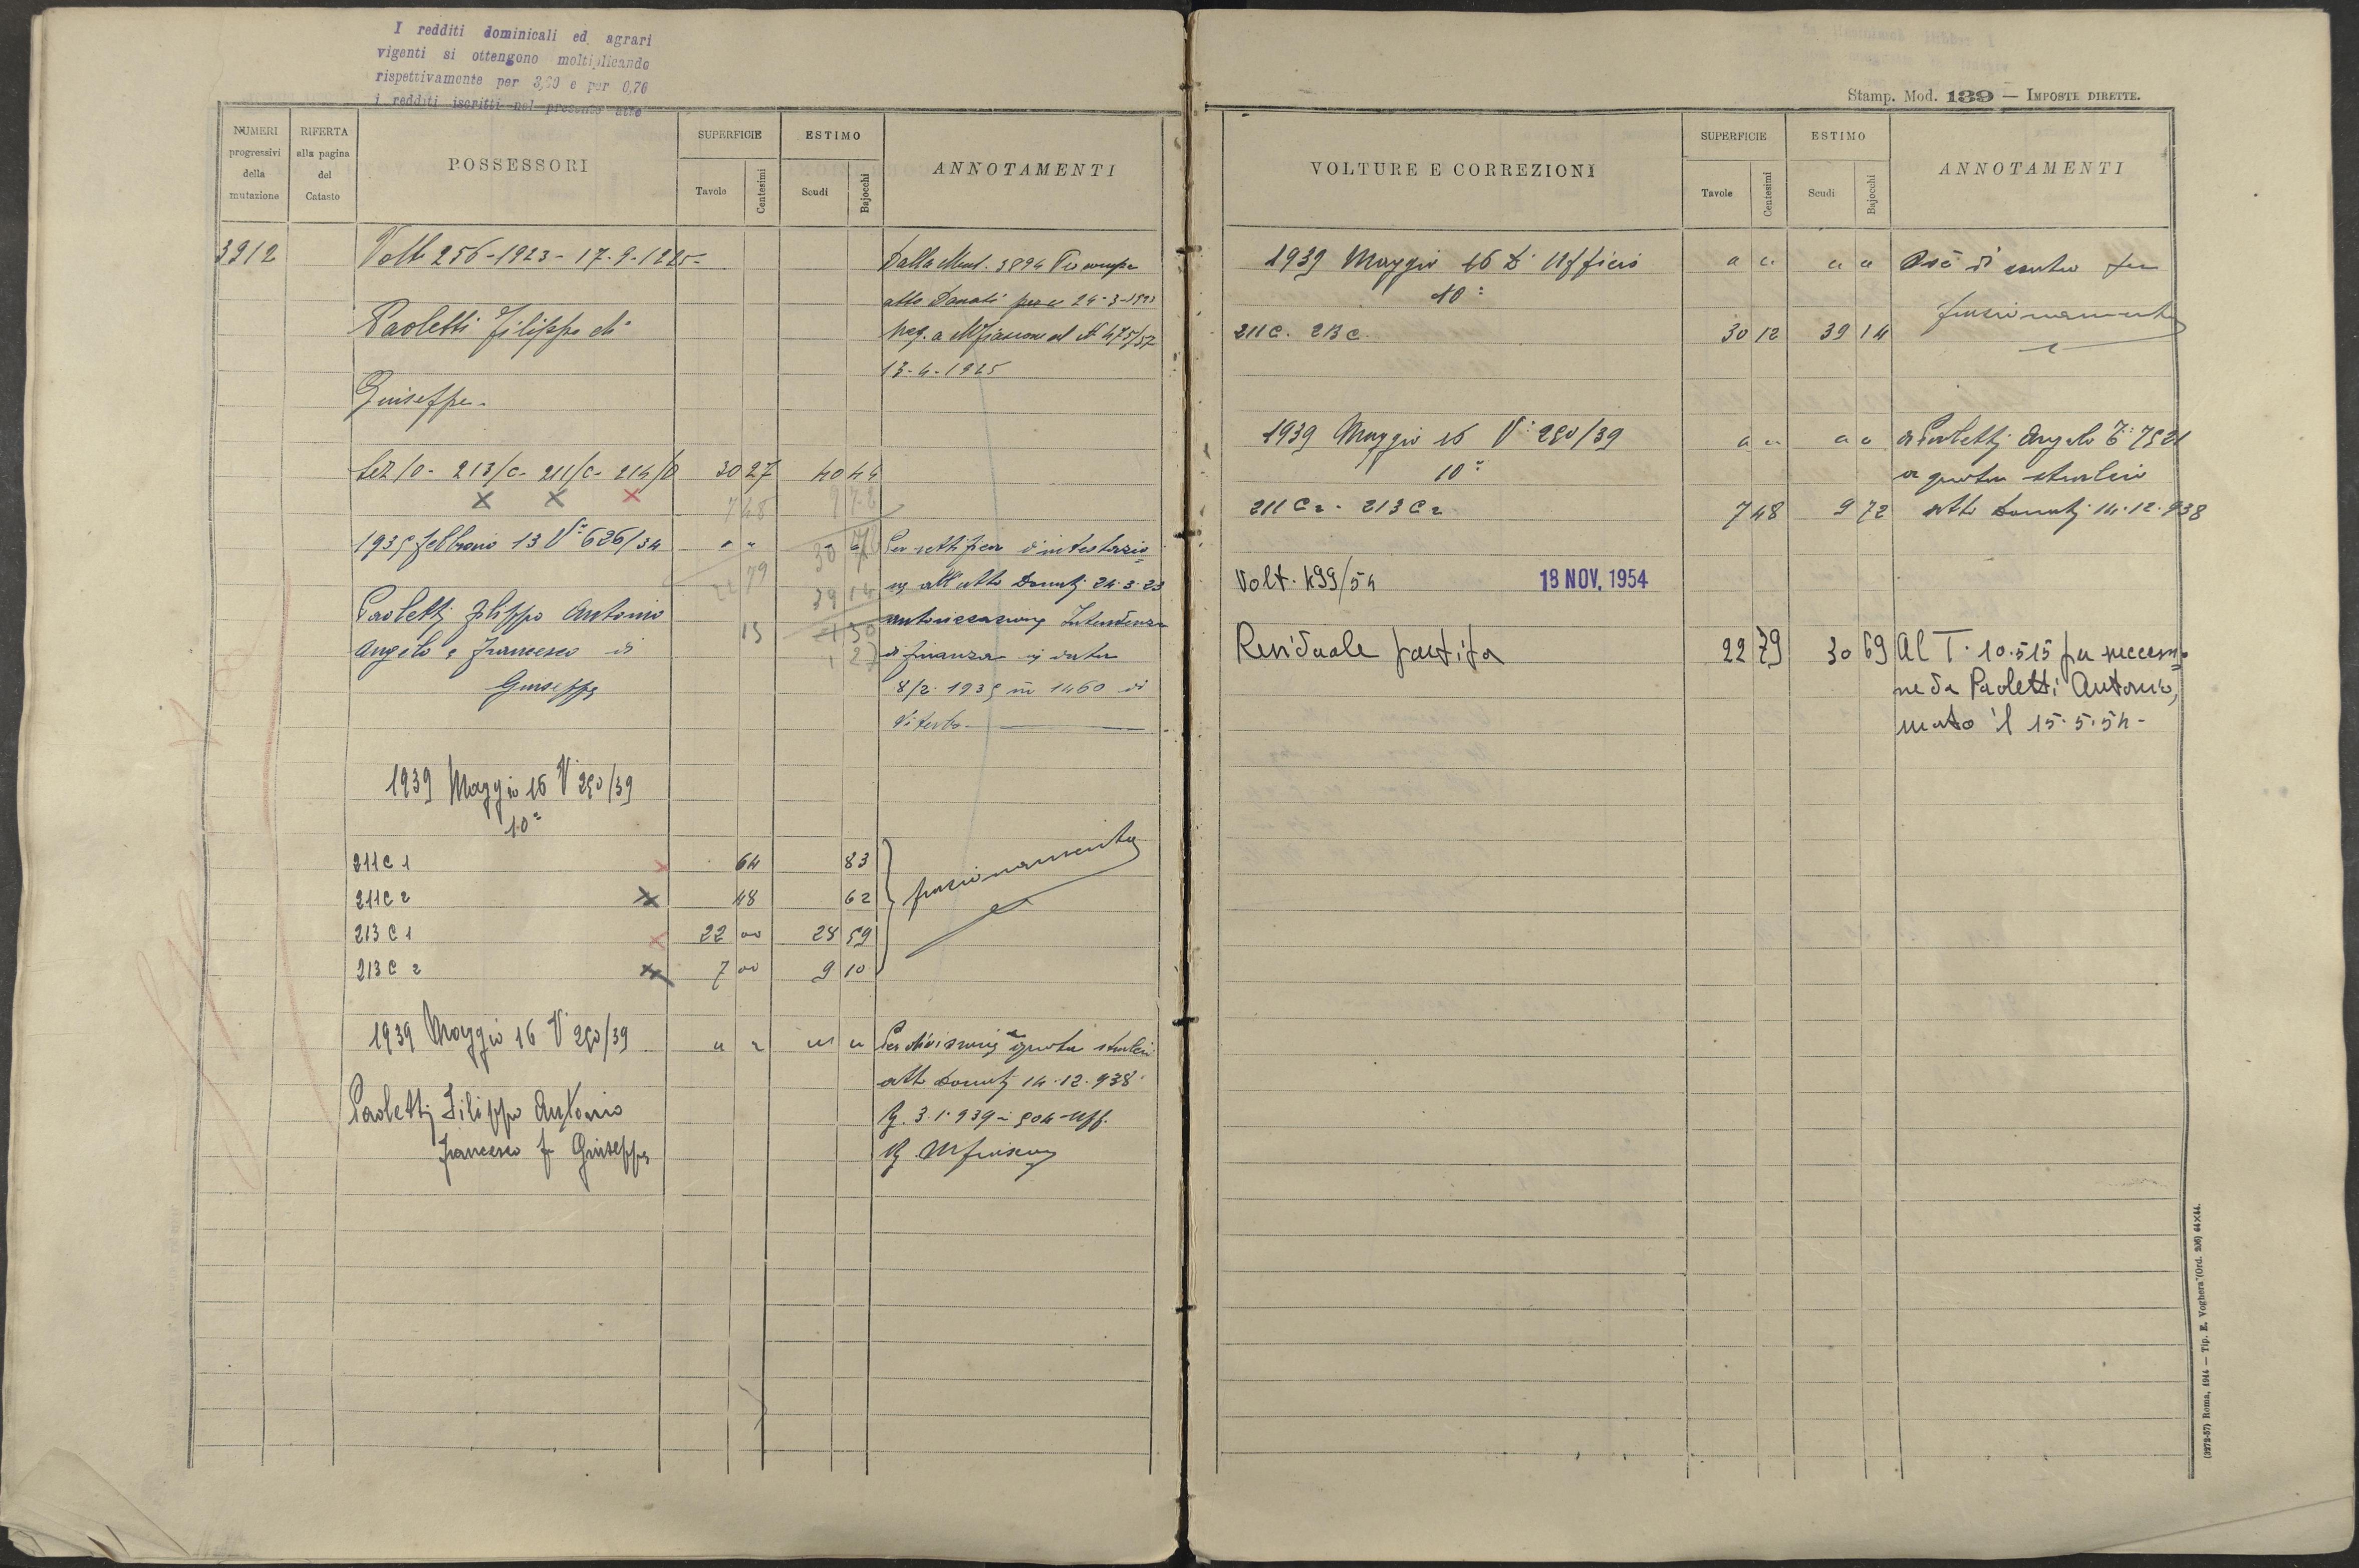 I redditi dominicali ed agrari
vigenti si ottengono moltiplicando
rispettivamente per 3,60 e per 0,76
i redditi iscritti nel presente atto
NUMERI progressivi della mutazione
RIFERTA alla pagina del Catasto
POSSESSORI
SUPERFICIE
Tavole
Centesimi
ESTIMO
Scudi
Bajocchi
ANNOTAMENTI
3912 Volt 256-1923- 17-9-1925- Dalla Mut. 3894 Per compra
atto Donati 24-3-1923
Paoletti Filippo di Reg. a Mfiascone al N 475/57
13-4-1925
Giuseppe-
Sez/0- 213/C- 211/C- 214/0 30 27 40 44
7 48 9 72
1935 febbraio 13 V° 626/34 " " Per rettifica d'intestazio
all'atto Donati 24.3.23
Paoletti Filippo Antonio autorizzazione Intendenza
Angelo e Francesco di di finanza in data
Giuseppe 8/2. 1935 n 1460 di
Viterbo
1939 Maggio 16 V 250/39
10=
211C 1 64 83
211C 2 48 62 frazionamento
213 C 1 22 00 28 59
213 C 2 7 00 9 10
1939 Maggio 16 V 250/39 " " " " Per divisione quota stralcio
atto Donati 14.12.938
Paoletti Filippo Antonio
Francesco fu Giuseppe
Stamp. Mod. 139 — IMPOSTE DIRETTE.
VOLTURE E CORREZIONI
SUPERFICIE
Tavole
Centesimi
ESTIMO
Scudi
Bajocchi
ANNOTAMENTI
1939 Maggio 16 D'Ufficio " " " " di contro per
10= frazionamento
211 C. 213 C. 30 12 39 14
1939 Maggio 16 V° 250/39 " " " " a Paoletti Angelo
10= a quota stralcio
211 C2. 213 C2 7 48 9 72 atto Donati 14.12.938
Volt. 499/54 18 NOV. 1954
Residuale partita 22 79 30 69 Al T. 10.515 per successio
ne da Paoletti Antonio,
morto il 15.5.54-
(3272-57) Roma, 1914 — Tip. E. Voghera (Ord. 206) 64×44.